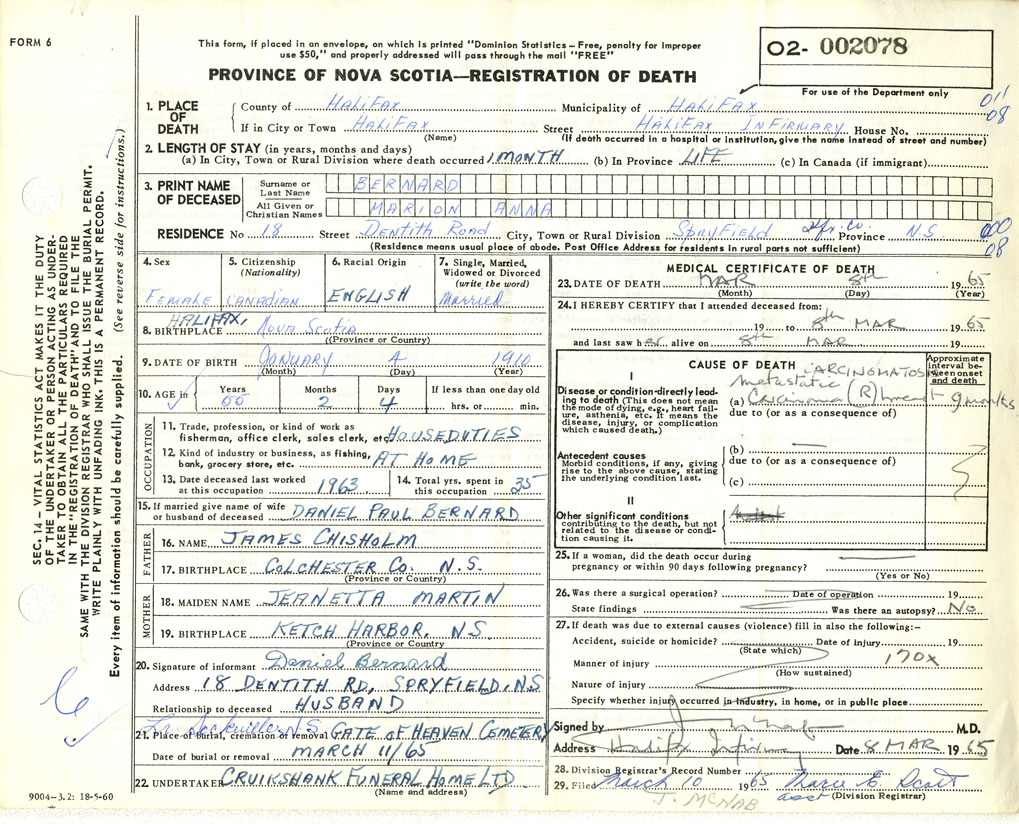 FORM 6
This form, if placed in an envelope, on which is printed "Dominion Statistics – Free, penalty for improper
use $50," and properly addressed will pass through the mail "FREE"
PROVINCE OF NOVA SCOTIA—REGISTRATION OF DEATH
O2- 002078
For use of the Department only
011
08
1. PLACE OF DEATH
County of HALIFAX Municipality of HALIFAX
If in City or Town HALIFAX Street HALIFAX INFIRMARY House No.
(Name) (If death occurred in a hospital or institution, give the name instead of street and number)
2. LENGTH OF STAY (in years, months and days)
(a) In City, Town or Rural Division where death occurred 1 MONTH (b) In Province LIFE (c) In Canada (if immigrant)
3. PRINT NAME OF DECEASED
Surname or Last Name BERNARD
All Given or Christian Names MARION ANNA
RESIDENCE No 18 Street Dentith Road City, Town or Rural Division Spryfield Hfx. Co. Province N.S.
08
(Residence means usual place of abode. Post Office Address for residents in rural parts not sufficient)
4. Sex
Female
5. Citizenship
(Nationality)
Canadian
6. Racial Origin
ENGLISH
7. Single, Married,
Widowed or Divorced
(write the word)
Married
8. BIRTHPLACE HALIFAX, Nova Scotia
(Province or Country)
9. DATE OF BIRTH January 4 1910
(Month) (Day) (Year)
10. AGE in
Years Months Days If less than one day old
55 2 4 hrs. or min.
OCCUPATION
11. Trade, profession, or kind of work as
fisherman, office clerk, sales clerk, etc. HOUSEDUTIES
12. Kind of industry or business, as fishing,
bank, grocery store, etc. AT HOME
13. Date deceased last worked
at this occupation 1963
14. Total yrs. spent in
this occupation 35
15. If married give name of wife
or husband of deceased DANIEL PAUL BERNARD
FATHER
16. NAME JAMES CHISHOLM
17. BIRTHPLACE COLCHESTER CO. N.S.
(Province or Country)
MOTHER
18. MAIDEN NAME JEANETTA MARTIN
19. BIRTHPLACE KETCH HARBOR, NS
(Province or Country
20. Signature of informant Daniel Bernard
Address 18 DENTITH RD, SPRYFIELD, NS
Relationship to deceased HUSBAND
Lr. Sackville NS
21. Place of burial, cremation or removal GATE OF HEAVEN CEMETERY
Date of burial or removal MARCH 11/65
22. UNDERTAKER CRUIKSHANK FUNERAL HOME LTD
(Name and address)
MEDICAL CERTIFICATE OF DEATH
23. DATE OF DEATH MAR 8th 1965
(Month) (Day) (Year)
24. I HEREBY CERTIFY that I attended deceased from:
19 to 8th MAR 1965
and last saw her alive on 8th MAR 19
CAUSE OF DEATH
Approximate interval between onset and death
I
Disease or condition directly leading to death (This does not mean the mode of dying, e.g., heart failure, asthenia, etc. It means the disease, injury, or complication which caused death.)
CARCINOMATOSIS
metastatic
(a) Carcinoma (R) breast 9 months
due to (or as a consequence of)
Antecedent causes
Morbid conditions, if any, giving rise to the above cause, stating the underlying condition last.
(b)
due to (or as a consequence of)
(c)
II
Other significant conditions
contributing to the death, but not related to the disease or condition causing it.
25. If a woman, did the death occur during
pregnancy or within 90 days following pregnancy?
(Yes or No)
26. Was there a surgical operation? Date of operation 19
State findings Was there an autopsy? No
27. If death was due to external causes (violence) fill in also the following:-
Accident, suicide or homicide? Date of injury 19
(State which)
Manner of injury 170X
(How sustained)
Nature of injury
Specify whether injury occurred in industry, in home, or in public place
Signed by M.D.
Address Halifax Infirmary Date 8 MAR 1965
28. Division Registrar's Record Number
29. Filed March 10 1965 Marie E. Scott
asst (Division Registrar)
J. MCNAB
9004-3.2: 18-5-60
SEC. 14 – VITAL STATISTICS ACT MAKES IT THE DUTY
OF THE UNDERTAKER OR PERSON ACTING AS UNDER-
TAKER TO OBTAIN ALL THE PARTICULARS REQUIRED
IN THE "REGISTRATION OF DEATH" AND TO FILE THE
SAME WITH THE DIVISION REGISTRAR WHO SHALL ISSUE THE BURIAL PERMIT.
WRITE PLAINLY WITH UNFADING INK. THIS IS A PERMANENT RECORD.
Every item of information should be carefully supplied. (See reverse side for instructions.)